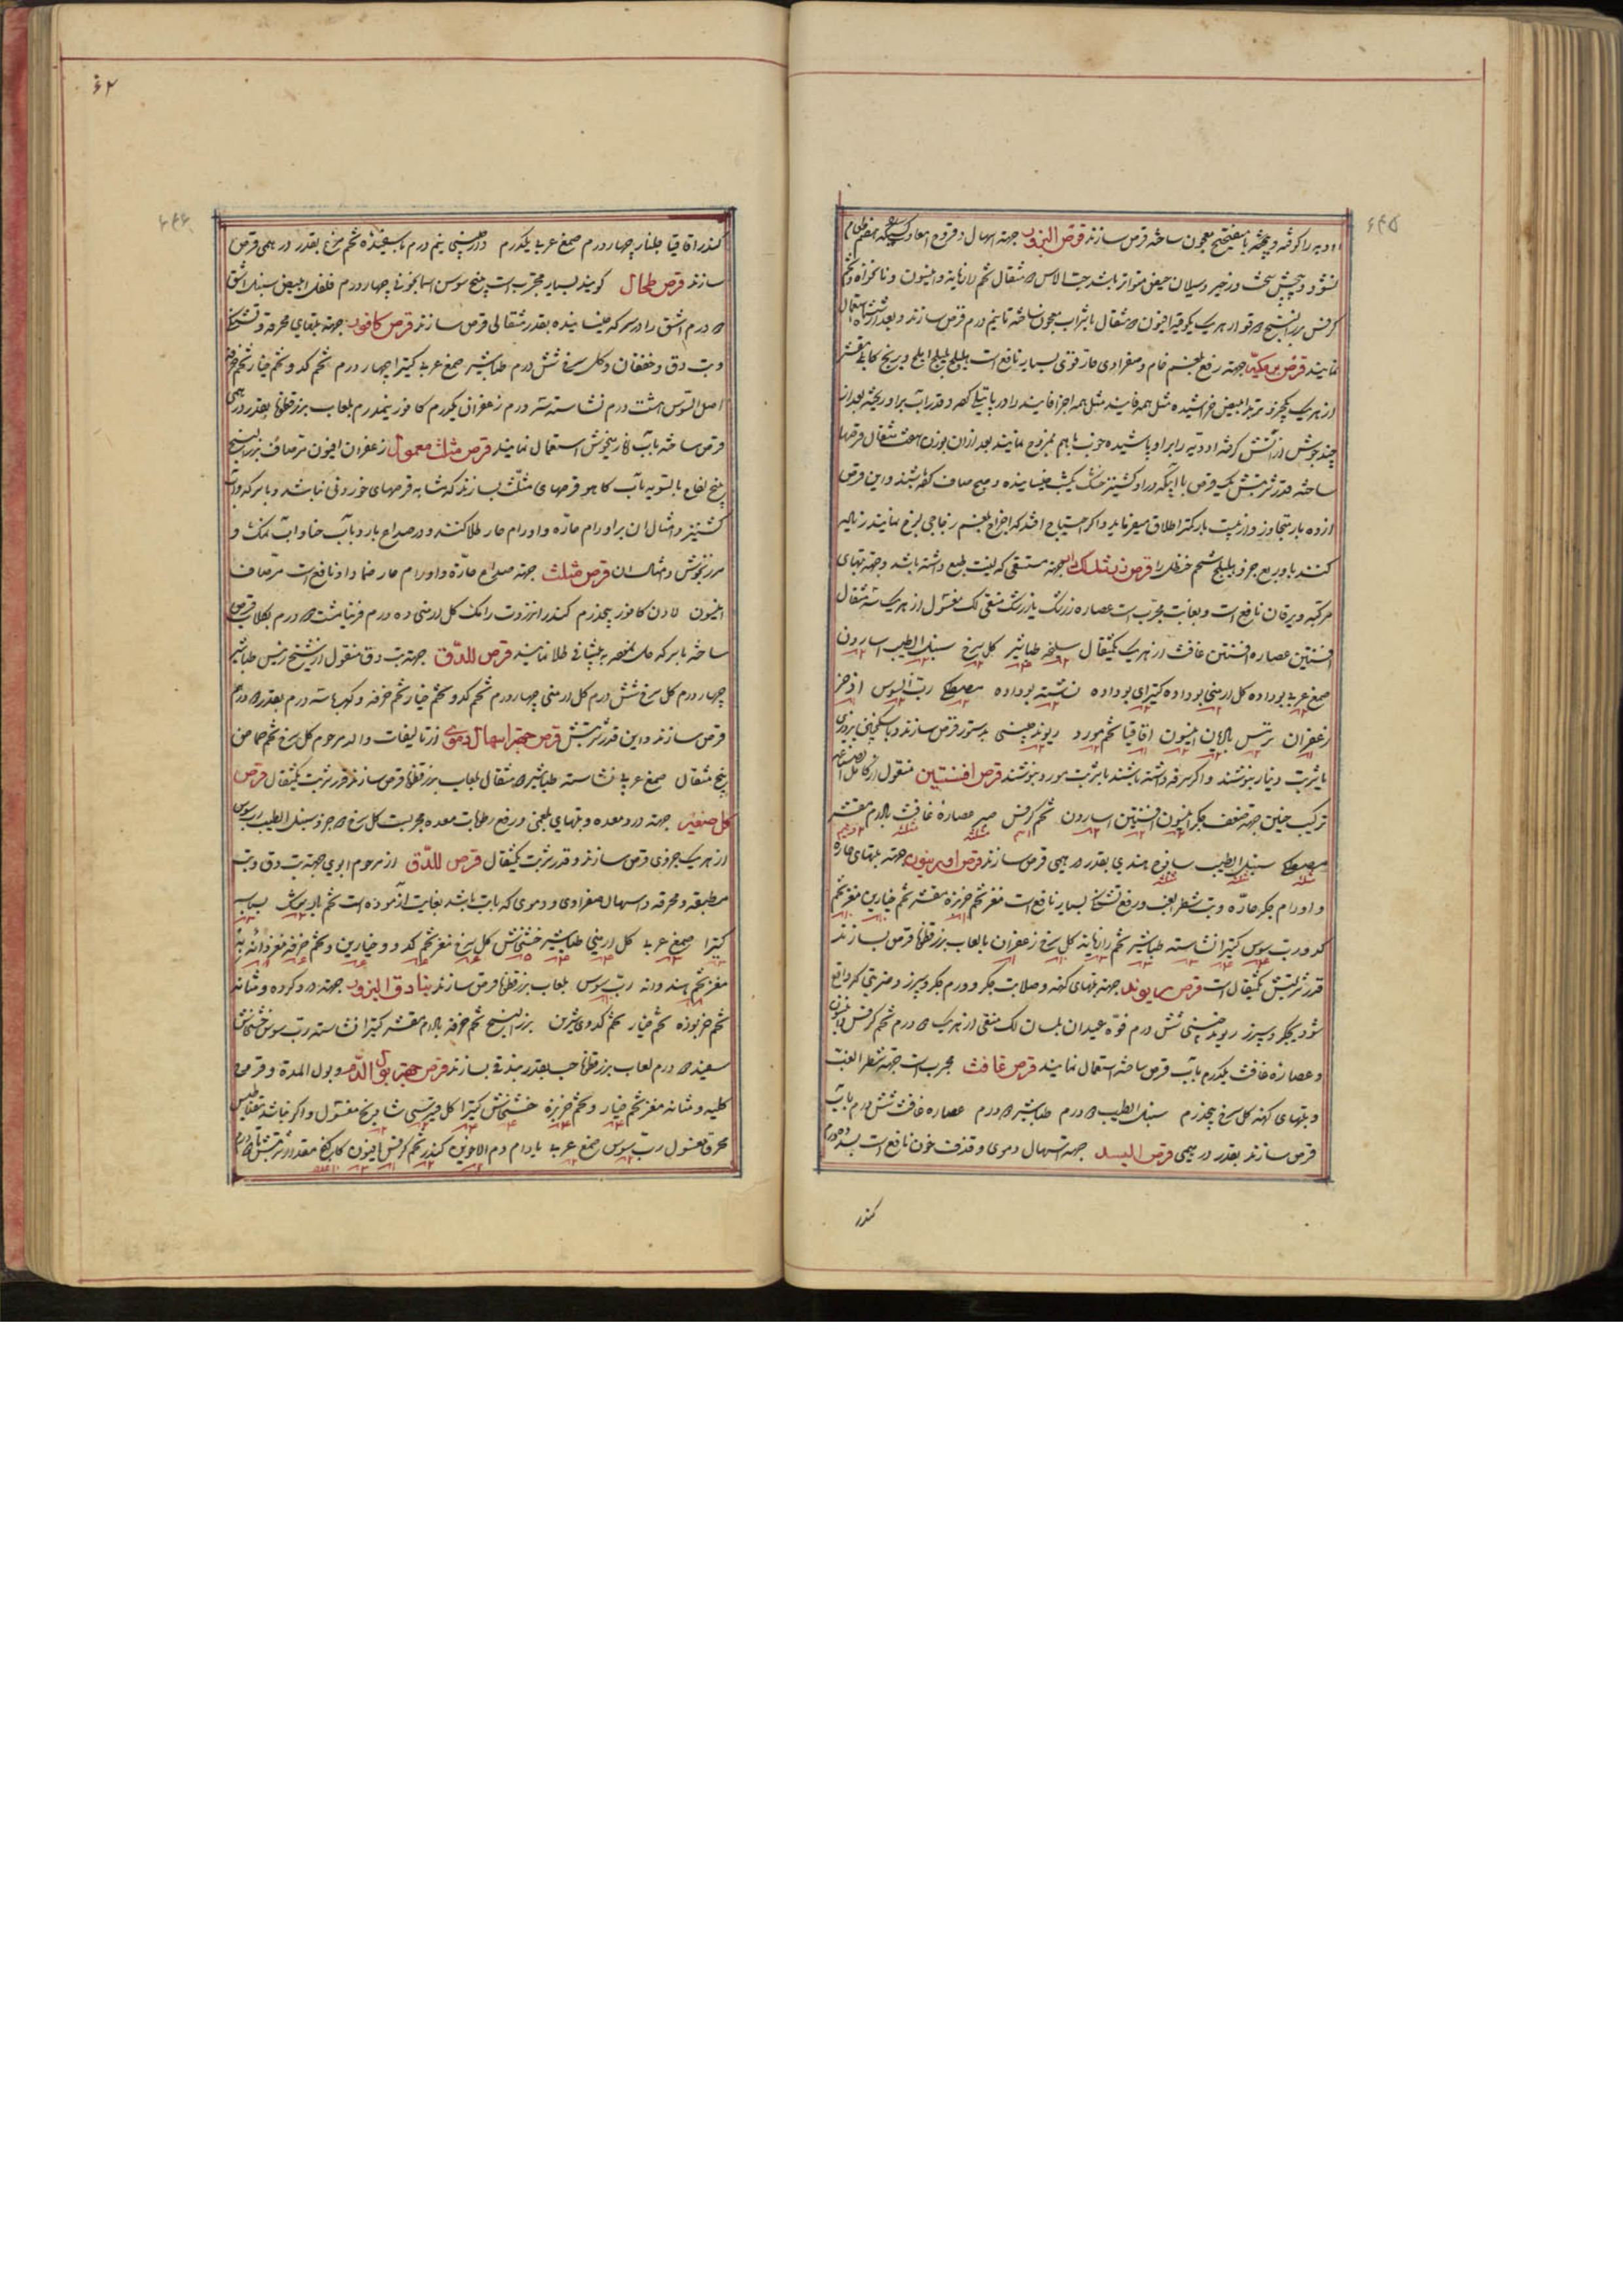 ۶۴۵
ادویه را کوفته و پخته با میفختج معجون ساخته قرص سازند قرص البزور جهته اسهال و قروح امعاء
نشود و پیچش سخت و زحیر و سیلان حیض متواتر باشد حب الاس ۵ مثقال تخم رازیانه و انیسون و نانخواه و تخم
کرفس بزر البنج دوقو از هریک یکوقیه افیون ۵ مثقال با شراب معجون ساخته تا نیم درم قرص سازند و بعد از ششماه استعمال
نمایند قرص برمکی جهته رفع بلغم خام و صفراوی حار قوی بسیار نافع است هلیله بلیله املج و برنج کابلی مقشر
از هریک یکجزو تربد ابیض خراشیده مثل همه فانیذ مثل همه اجزا فانیذ را در پاتیل کرده و قدر آب بر او ریخته بعد از
چند جوش از آتش گرفته ادویه را بر او پاشیده خوب باهم ممزوج نمایند بعد از آن بوزن هفت مثقال قرصها
ساخته قدر شربتش یک قرص با آبی که در او کشنیز خشک یکشب خیسانیده و صبح صاف کرده باشند و این قرص
از ده بار متجاوز و از بیست بار کمتر اطلاق میفرماید و اگر احتیاج افتد که اخراج بلغم زجاجی لزج نمایند زنجبیل
کنند با و ربع جزو هلیله شحم حنظل را قرص زرشک جهته مستسقی که لینت طبع داشته باشد و جهته تبهای
مرکبه و یرقان نافع است و بغایت مجرب است عصاره زرشک یا زرشک منقی لک مغسول از هریک سه مثقال
افسنتین عصاره افسنتین غافث از هریک یکمثقال سلیخه طباشیر گل سرخ سنبل الطیب اسارون
صمغ عربی بوداده گل ارمنی بوداده کتیرای بوداده نشاسته بوداده مصطکی رب السوس اذخر
زعفران ترمس بالان انیسون اقاقیا تخم مورد ریوند چینی بدستور قرص سازند و با سکنجبین بزوری
یا شربت دینار بنوشند و اگر سرفه داشته باشند با شربت مورد بنوشند قرص افسنتین منقول از کامل الصناعه
ترکیب حنین جهته ضعف جگر انیسون افسنتین اسارون تخم کرفس صبر عصاره غافث بادام مقشر
مصطکی سنبل الطیب ساذج هندی بقدر ۵ درهمی قرص سازند قرص امیرباریس جهته تبهای حاره
و اورام جگر حاده و تب شطر الغب و رفع تشنگی بسیار نافع است مغز تخم خربزه مقشر تخم خیارین مغز تخم
کدو رب سوس کتیرا نشاسته طباشیر تخم رازیانه گل سرخ زعفران با لعاب بزرقطونا قرص بسازند
قدر شربتش یکمثقال است قرص ریوند جهته تبهای کهنه و صلابت جگر و ورم جگر و سپرز و ضربتی که واقع
شود بجگر و سپرز ریوند چینی شش درم فوه عیدان بلسان لک منقی از هریک ۵ درم تخم کرفس انیسون
و عصاره غافث یکدرم بآب قرص ساخته استعمال نمایند قرص غافث مجرب است جهته شطر الغب
و تبهای کهنه گل سرخ پنجدرم سنبل الطیب ۵ درم طباشیر ۵ درم عصاره غافث شش درم بآب
قرص سازند بقدر درهمی قرص البسد جهته اسهال دموی و قذف خون نافع است بسد ده درم
کندر
۶۲
۶۴۶
کندر اقاقیا جلنار چهار درم صمغ عربی یکدرم دارچینی نیم درم با سفیده تخم مرغ بقدر درهمی قرص
سازند قرص طحال گویند بسیار مجرب است بیخ سوس اسمانجونی چهار درم فلفل ابیض سنبل اشق
۵ درم اشق را در سرکه خیسانیده بقدر مثقالی قرص سازند قرص کافور جهته تبهای محرقه و تشنگی
و تب دق و خفقان و گل سرخ شش درم طباشیر صمغ عربی کتیرا چهار درم تخم کدو تخم خیار تخم خرفه
اصل السوس هشت درم نشاسته سه درم زعفران یکدرم کافور نیمدرم بلعاب بزرقطونا بقدر درهمی
قرص ساخته بآب انار میخوش استعمال نمایند قرص مثلث معمول زعفران افیون مر صاف بزرالبنج
بیخ لفاح بالسویه بآب کاهو قرصهای مثلث بسازند که مشابه قرصهای خوردنی نباشد و با سرکه و آب
کشنیز و امثال ان بر اورام حاره و اورام حار طلا کنند و در صداع بارد بآب حنا و آب نمک و
مرزنجوش و امثال ان قرص مثلث جهته صداع حاره و اورام حار ضمادا و نافع است مر صاف
افیون لادن کافور پنجدرم کندر انزروت رامک گل ارمنی ده درم فربیا شث ۵ درم بگلاب قرص
ساخته با سرکه حل نموده به پیشانی طلا نمایند قرص للدق جهته تب دق منقول از شیخ رئیس طباشیر
چهار درم گل سرخ شش درم گل ارمنی چهار درم تخم کدو تخم خیار تخم خرفه و کهربا سه درم بقدر ۵ درم
قرص سازند و این قدر شربتش قرص جهته اسهال دموی از تالیفات والد مرحوم گل سرخ تخم حماض
پنج مثقال صمغ عربی نشاسته طباشیر ۵ مثقال بلعاب بزرقطونا قرص سازند قدر شربت یکمثقال قرص
گل صغیر جهته درد معده و تبهای بلغمی و رفع رطوبات معده مجربست گل سرخ ۵ جزو سنبل الطیب رب سوس
از هریک جزوی قرص سازند و قدر شربت یکمثقال قرص للدق از مرحوم ابوی جهته تب دق و تب
مطبقه و محرقه و اسهال صفراوی و دموی که با تب باشد بغایت آزموده است تخم
کتیرا صمغ عربی گل ارمنی طباشیر خشخاش گل سرخ مغز تخم کدو و خیارین و تخم خرفه مغز دانه به
مغز تخم هندوانه رب سوس بلعاب بزرقطونا قرص سازند بنادق البزور جهته درد گرده و مثانه
تخم خربوزه تخم خیار تخم کدوی شیرین بزر البنج تخم خرفه بادام مقشر کتیرا نشاسته رب سوس خشخاش
سفید ۵ درم لعاب بزرقطونا حب بقدر بندقی بسازند قرص جهته بول الدم و بول المدة و قرحه
کلیه و مثانه مغز تخم خیار و تخم خربزه خشخاش کتیرا گل قبرسی شادنج مغسول و اگر نباشد مغناطیس
محرق مغسول رب سوس صمغ عربی بادام دم الاخوین کندر تخم کرفس افیون کاکنج مقدار شربتش تا ۵ درم